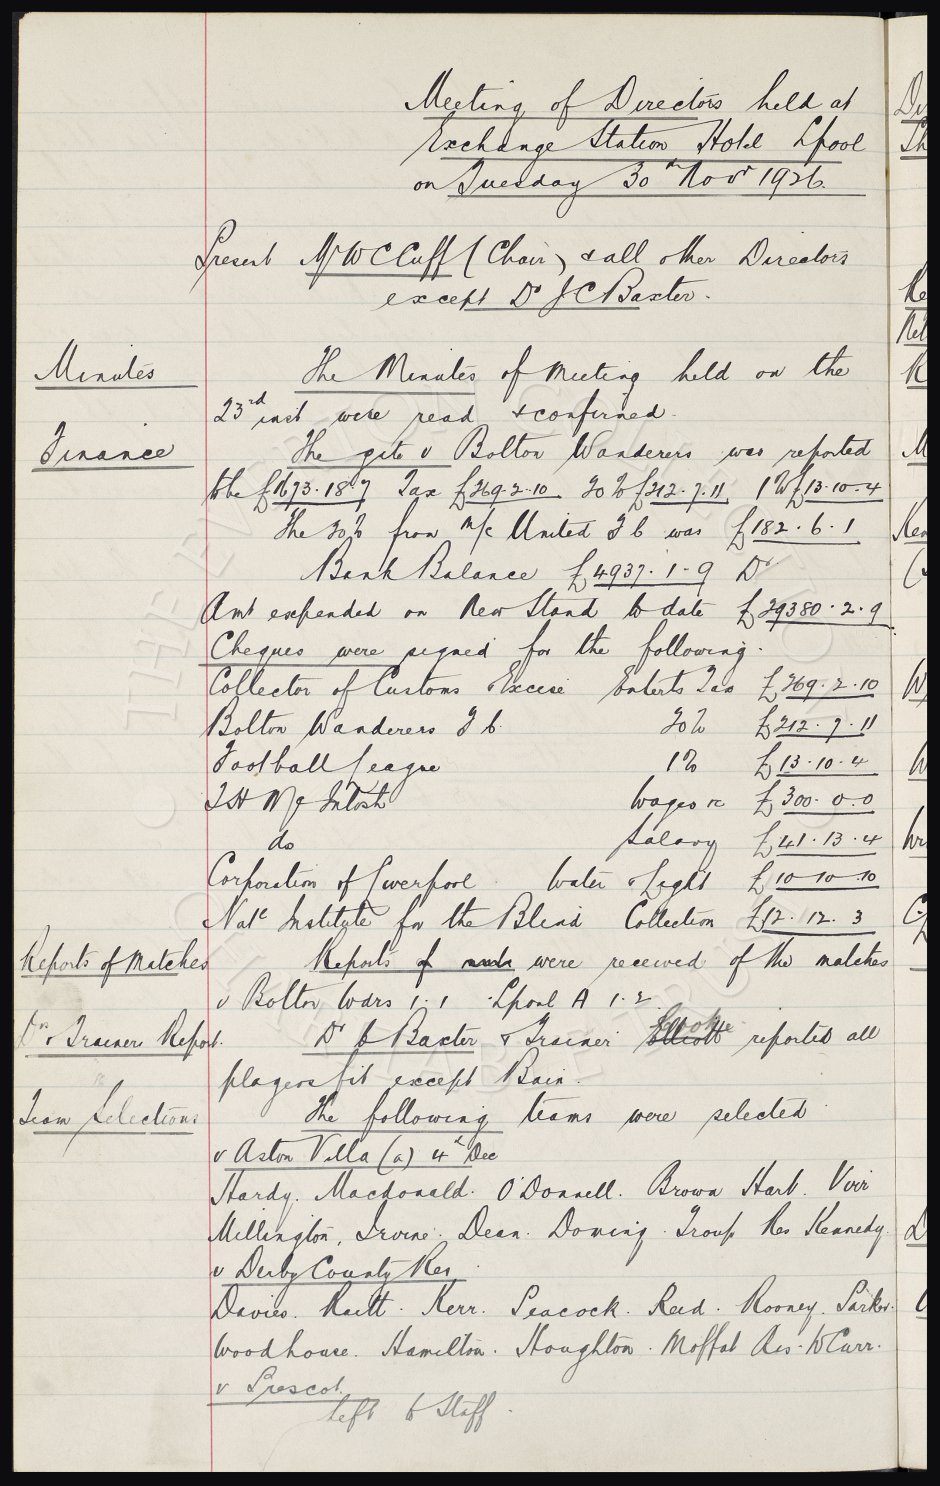 Meeting of Directors held at
Exchange Station Hotel Lpool
on Tuesday 30th Novr 1926.
Present Mr W C Cuff (Chair) & all other Directors
except Dr J C Baxter.
Minutes The Minutes of Meeting held on the
23rd inst were read & confirmed.
Finance The gate v Bolton Wanderers was reported
to be £1673.18.7 Tax £369.2.10 20% £212.7.11 1% £13.10.4
The 20% from M/c United F C was £182.6.1
Bank Balance £4937.1.9 Dr
Amt expended on New Stand to date £29380.2.9
Cheques were signed for the following.
Collector of Customs & Excise Enterts Tax £369.2.10
Bolton Wanderers F C. 20% £212.7.11
Football League 1% £13.10.4
T H McIntosh Wages &c £300.0.0
do Salary £41.13.4
Corporation of Liverpool Water & Light £10.10.10
Natl Institute for the Blind Collection £12.12.3
Reports of Matches Reports of were received of the matches
v Bolton Wdrs 1.1 Lpool A 1.2
Drs & Trainers Report. Dr C Baxter & Trainer Elliott Cooke reported all
players fit except Bain.
Team Selections The following teams were selected
v Aston Villa (a) 4th Dec
Hardy. Macdonald. O'Donnell. Brown Hart. Virr
Millington. Irvine. Dean. Dominy. Troup Res Kennedy.
v Derby County Res.
Davies. Raitt. Kerr. Peacock. Reid. Rooney. Parker.
Woodhouse. Hamilton. Houghton. Moffat Res. W Curr.
v Prescot.
left to Staff.